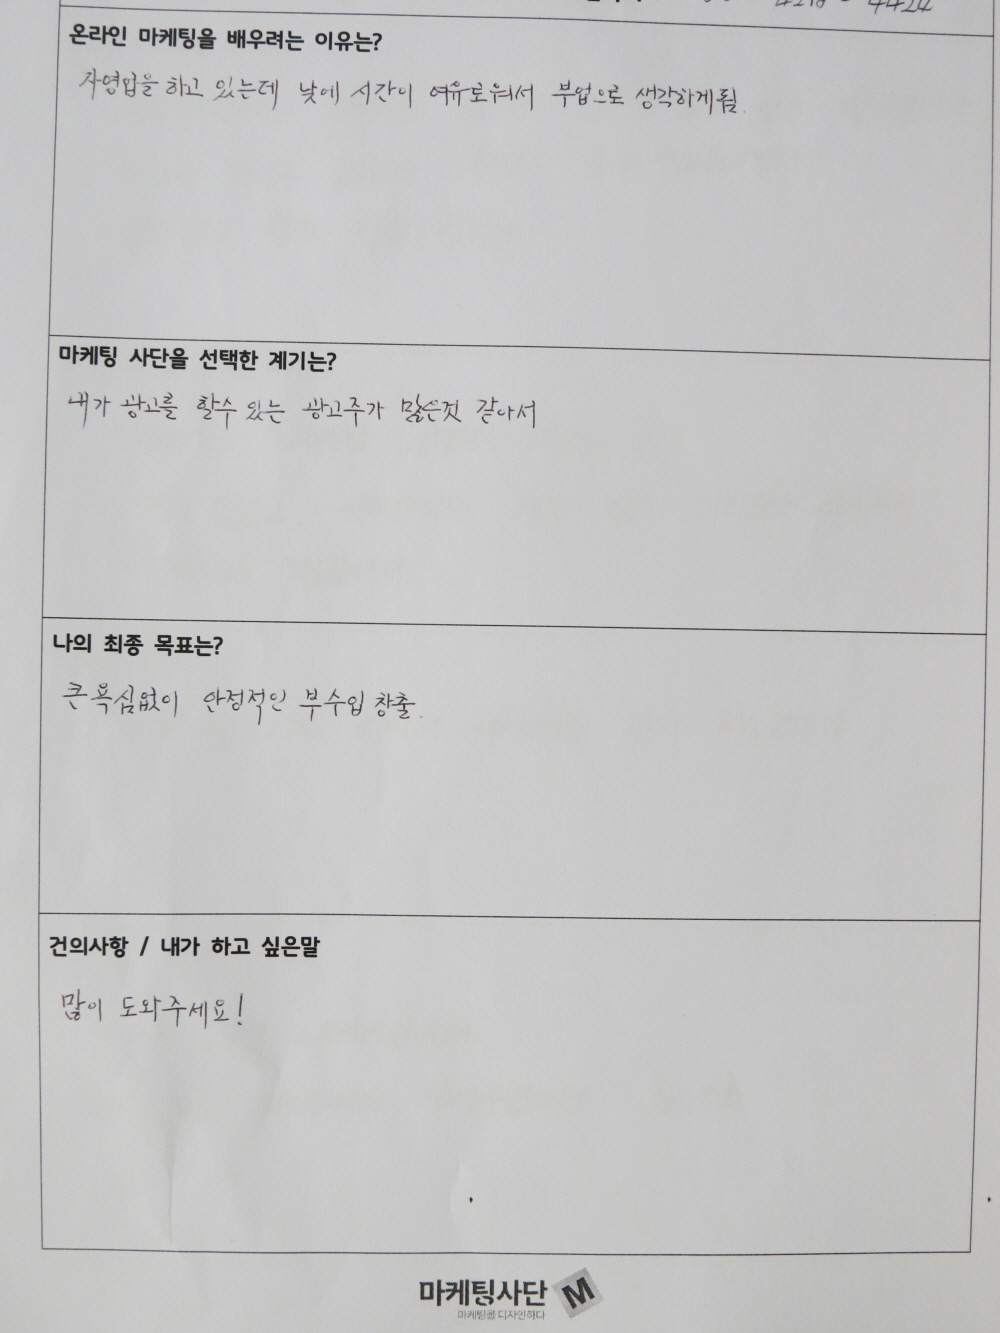 온라인 마케팅을 배우려는 이유는?
자영업을 하고 있는데 낮에 시간이 여유로워서 부업으로 생각하게됨.
마케팅 사단을 선택한 계기는?
내가 광고를 할수 있는 광고주가 많은것 같아서
나의 최종 목표는?
큰 욕심없이 안정적인 부수입 창출.
건의사항 / 내가 하고 싶은말
많이 도와주세요!
마케팅사단 M
마케팅을 디자인하다